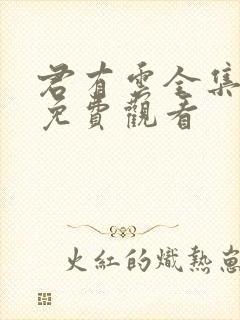 君有雲全集
免費觀看
火紅的熾熱崽